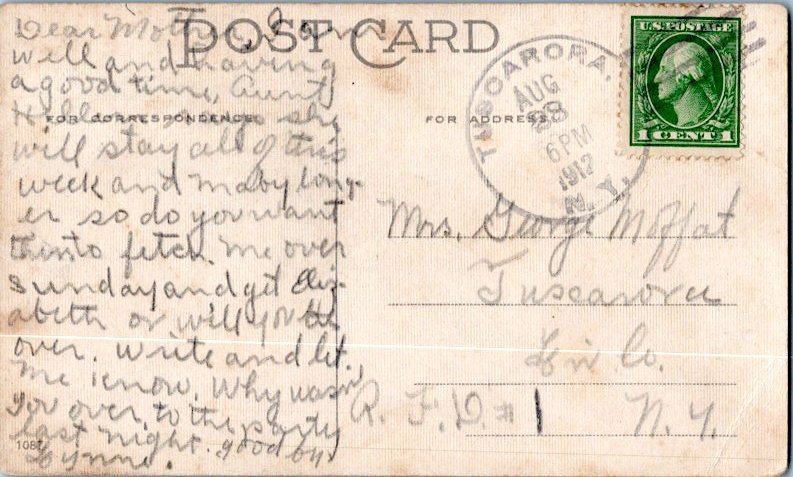 POST CARD
FOR CORRESPONDENCE
FOR ADDRESS
Dear Mother, I am
well and having
a good time, Aunt
says she
will stay all of this
week and maby long-
er so do you want
them to fetch me over
sunday and get Eliz-
abeth or will you
over. write and let
me know. Why wasn't
you over to the party
last night. good by
Lynne.
1087
TUSCARORA,
AUG
28
6 PM
1912
N.Y.
U.S. POSTAGE
1 CENT 1
Mrs. George Moffat
Tuscarora
Liv Co.
R. F. D. # 1 N. Y.